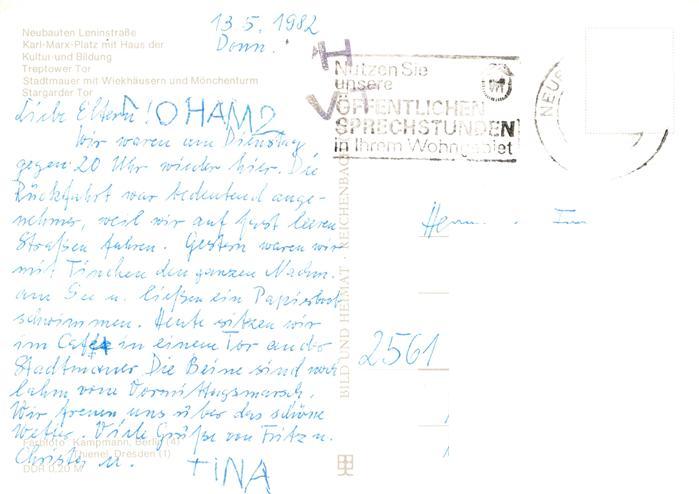 Neubauten Leninstraße
Karl-Marx-Platz mit Haus der
Kultur und Bildung
Treptower Tor
Stadtmauer mit Wiekhäusern und Mönchenturm
Stargarder Tor
13.5.1982
Donn.
Nutzen Sie
unsere
ÖFFENTLICHEN
SPRECHSTUNDEN
in Ihrem Wohngebiet
NEU
Liebe Eltern!
Wir waren am Dienstag
gegen 20 Uhr wieder hier. Die
Rückfahrt war bedeutend ange-
nehmer, weil wir auf fast leeren
Straßen fuhren. Gestern waren wir
mit Tinchen den ganzen Nachm.
am See u. ließen ein Papierboot
schwimmen. Heute sitzen wir
im Café in einem Tor an der
Stadtmauer. Die Beine sind noch
lahm vom Vormittagsmarsch.
Wir freuen uns über das schöne
Wetter. Viele Grüße von Fritz u.
Christel u. TiNA
Farbfoto: Kampmann, Berlin (4)
Thienel, Dresden (1)
DDR 0,20 M
BILD UND HEIMAT · REICHENBACH
2561